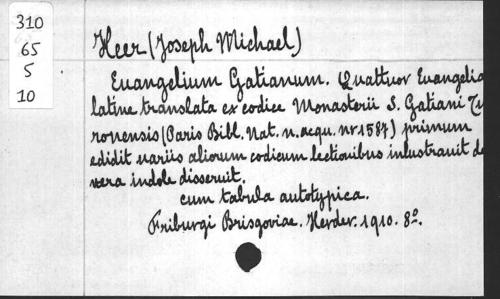 310
65
5
10
Heer (Joseph Michael)
Euangelium Gatianum. Quattuor Euangelia
latine translata ex codice Monasterii S. Gatiani Tu
ronensis (Paris Bibl. Nat. n. acqu. nr 1587) primum
edidit uariis aliorum codicum lectionibus inlustrauit de
vera indole disseruit.
cum tabula autotypica.
Friburgi Brisgoviae. Herder. 1910. 8º.